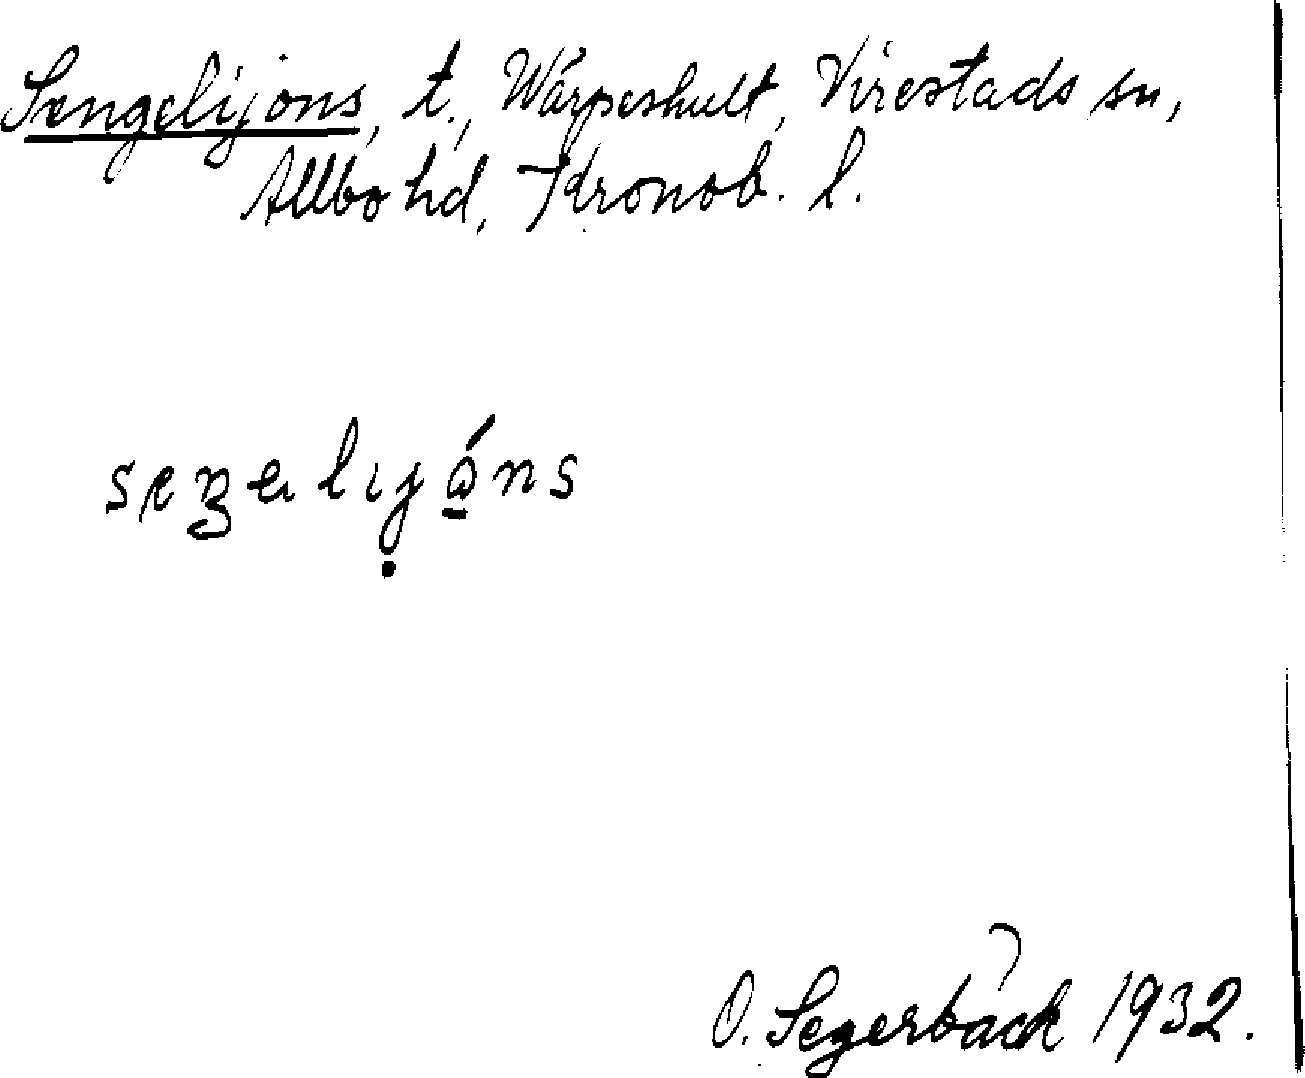 Sengelijons, t., Wärpeshult, Virestads sn,
Allbo hd, Kronob. l.
seŋəlɩjȧ́ns
O. Segerbäck 1932.